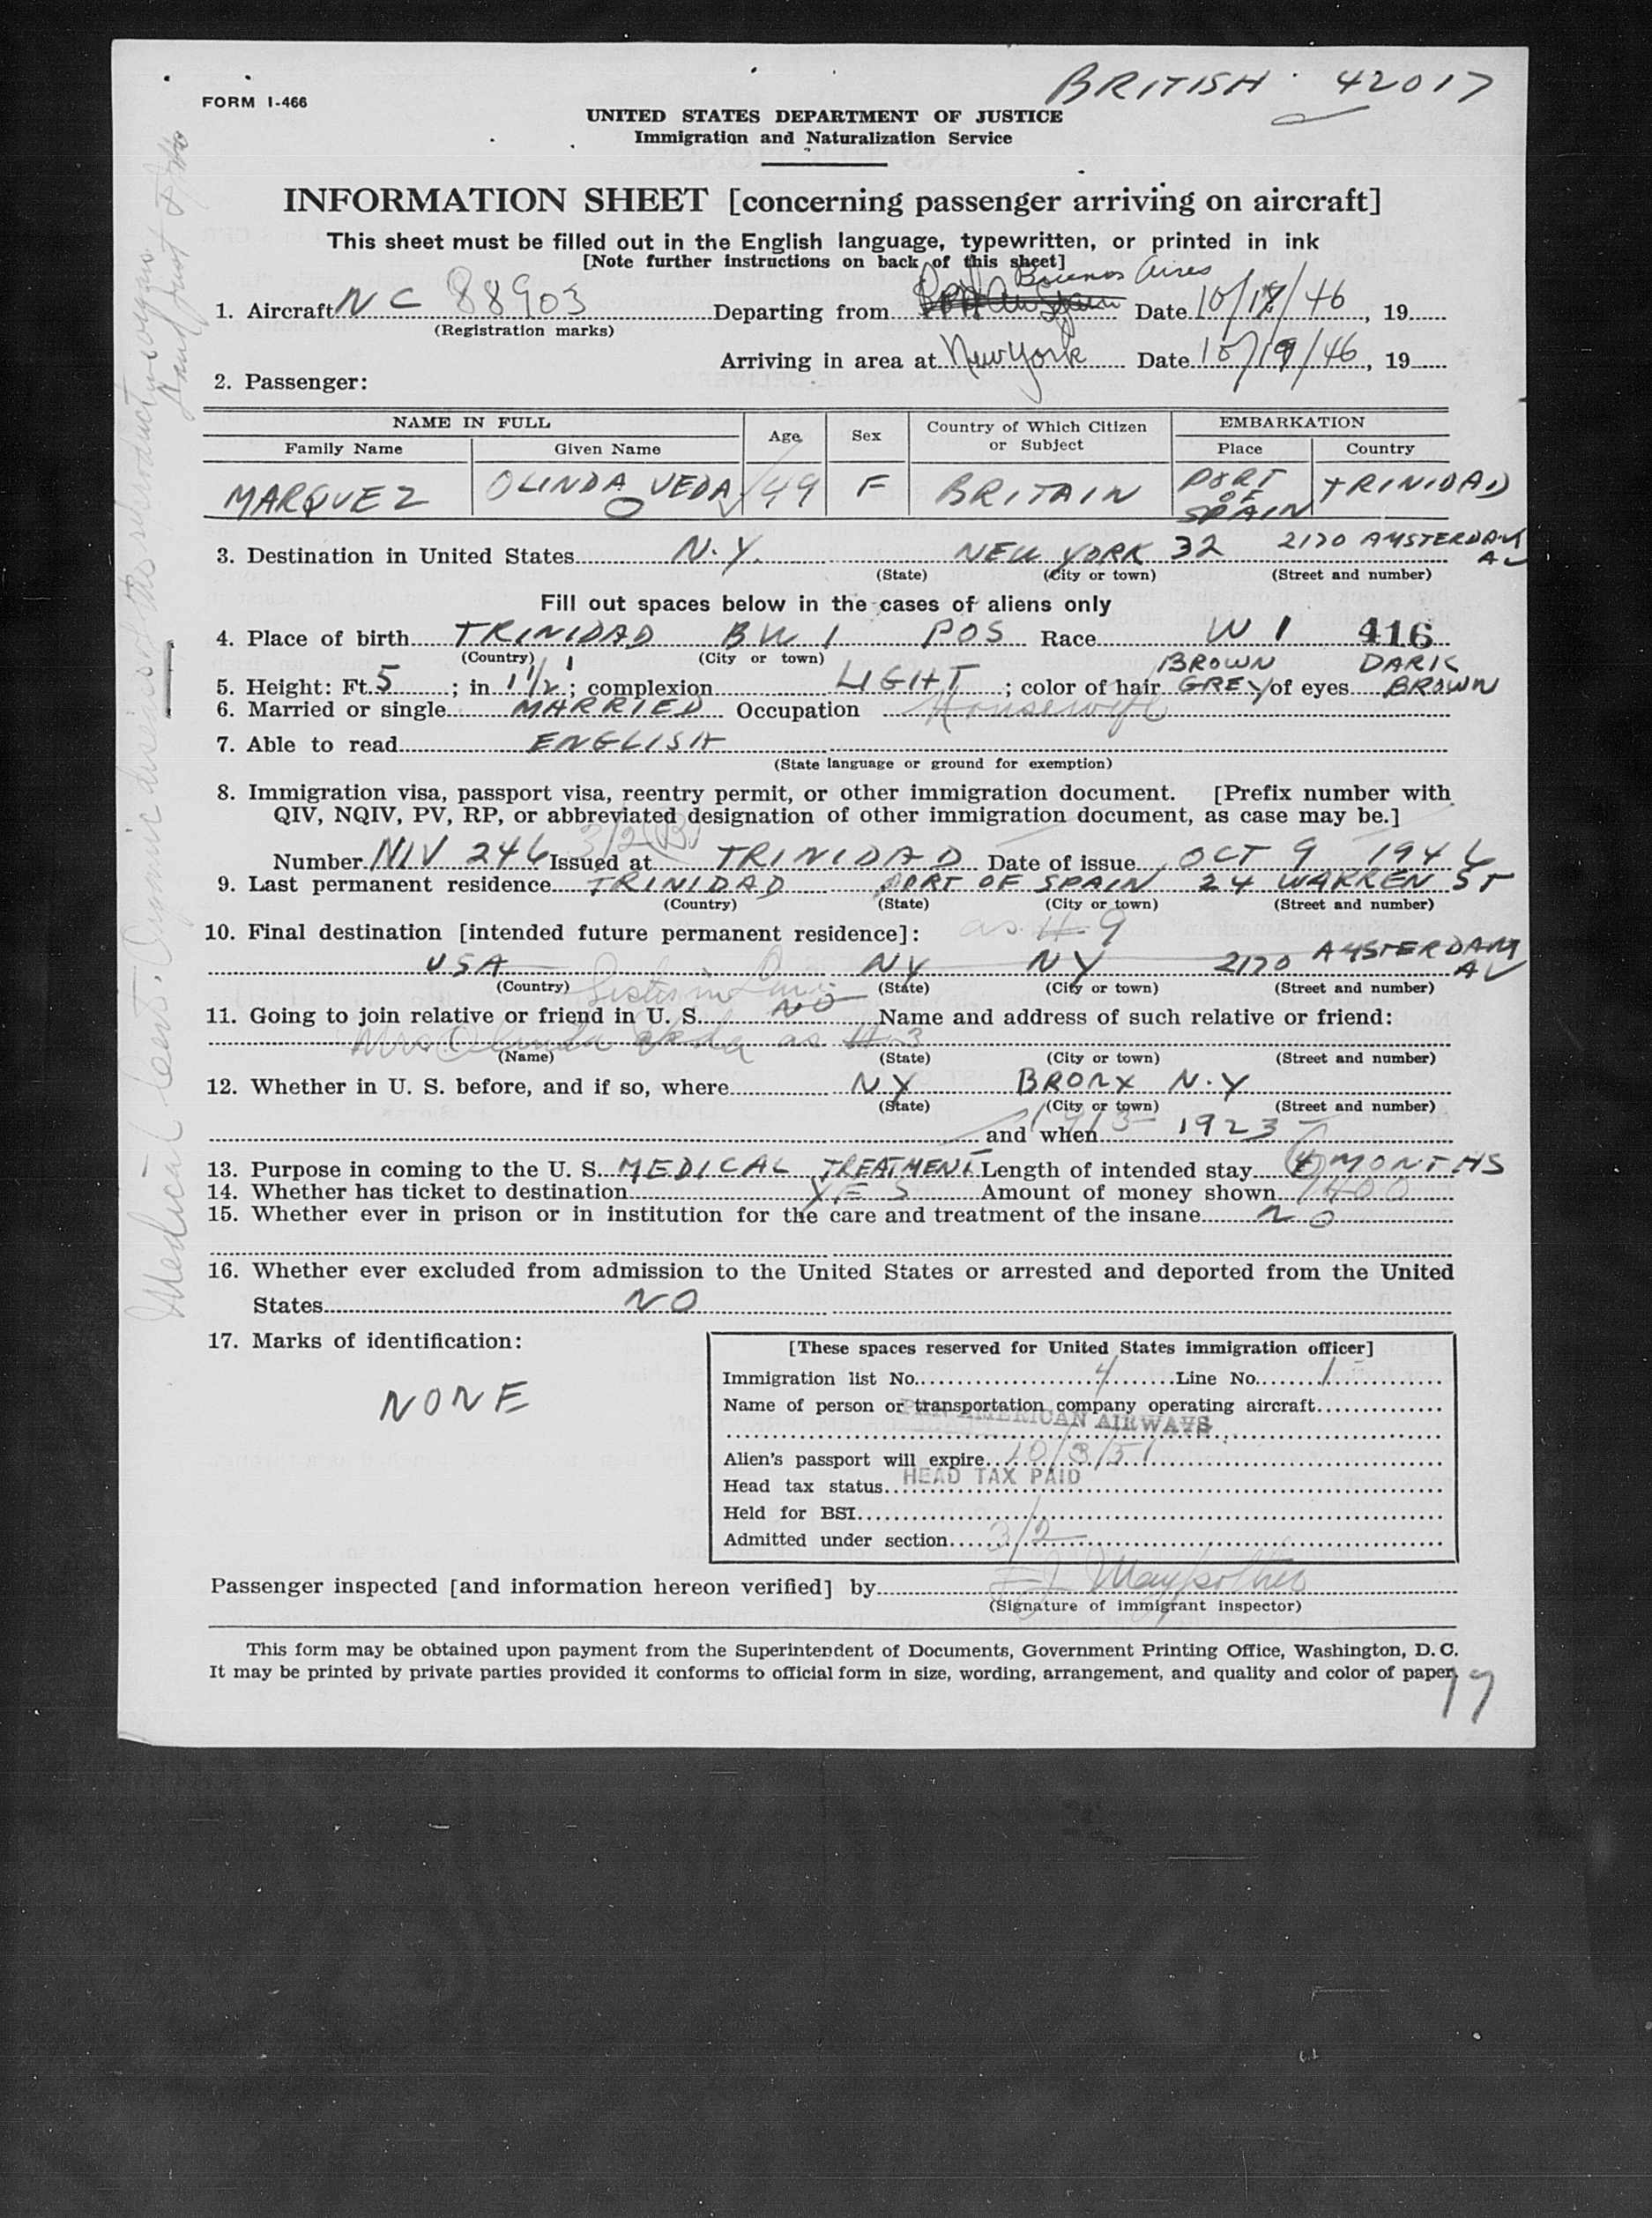 BRITISH 42017
FORM I-466
UNITED STATES DEPARTMENT OF JUSTICE
Immigration and Naturalization Service
INFORMATION SHEET [concerning passenger arriving on aircraft]
This sheet must be filled out in the English language, typewritten, or printed in ink
[Note further instructions on back of this sheet]
Buenos Aires
1. Aircraft NC 88903 Departing from Date 10/18/46, 19
(Registration marks)
Arriving in area at New York Date 10/19/46, 19
2. Passenger:
NAME IN FULL Age Sex Country of Which Citizen or Subject EMBARKATION
Family Name Given Name Place Country
MARQUEZ OLINDA VEDA 49 F BRITAIN PORT OF SPAIN TRINIDAD
3. Destination in United States N.Y. NEW YORK 32 2170 AMSTERDAM AV
(State) (City or town) (Street and number)
Fill out spaces below in the cases of aliens only
4. Place of birth TRINIDAD BWI POS Race W I 416
(Country) (City or town)
BROWN DARK
5. Height: Ft. 5; in 1 1/2; complexion LIGHT; color of hair GREY of eyes BROWN
6. Married or single MARRIED Occupation Housewife
7. Able to read ENGLISH
(State language or ground for exemption)
8. Immigration visa, passport visa, reentry permit, or other immigration document. [Prefix number with
QIV, NQIV, PV, RP, or abbreviated designation of other immigration document, as case may be.]
3/2(B)
Number NIV 246 Issued at TRINIDAD Date of issue OCT 9 1946
9. Last permanent residence TRINIDAD PORT OF SPAIN 24 WARREN ST
(Country) (State) (City or town) (Street and number)
10. Final destination [intended future permanent residence]: as # 9
USA NY NY 2170 AMSTERDAM AV
(Country) (State) (City or town) (Street and number)
Sister in Law
11. Going to join relative or friend in U. S. NO Name and address of such relative or friend:
Mrs Olinda Veda as # 3
(Name) (State) (City or town) (Street and number)
12. Whether in U. S. before, and if so, where NY BRONX N.Y
(State) (City or town) (Street and number)
and when 1913 1923
13. Purpose in coming to the U. S. MEDICAL TREATMENT Length of intended stay 4 MONTHS
14. Whether has ticket to destination YES Amount of money shown 1400
15. Whether ever in prison or in institution for the care and treatment of the insane NO
16. Whether ever excluded from admission to the United States or arrested and deported from the United
States NO
17. Marks of identification:
NONE
[These spaces reserved for United States immigration officer]
Immigration list No. 4 Line No. 1
Name of person or transportation company operating aircraft
PAN AMERICAN AIRWAYS
Alien's passport will expire 10/3/51
Head tax status HEAD TAX PAID
Held for BSI
Admitted under section 3/2
Passenger inspected [and information hereon verified] by
(Signature of immigrant inspector)
This form may be obtained upon payment from the Superintendent of Documents, Government Printing Office, Washington, D. C.
It may be printed by private parties provided it conforms to official form in size, wording, arrangement, and quality and color of paper.
19